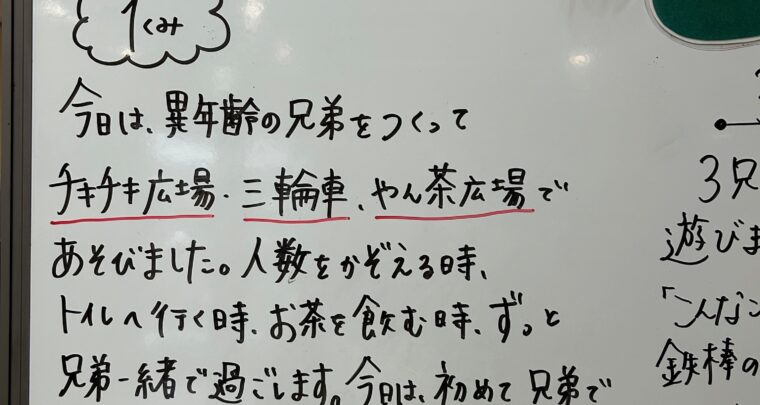 1くみ
今日は、異年齢の兄弟をつくって
チキチキ広場・三輪車、やん茶広場で
あそびました。人数をかぞえる時、
トイレへ行く時、お茶を飲む時、ずっと
兄弟一緒で過ごします。今日は、初めて兄弟で
3兄
遊びま
「こんな
鉄棒の